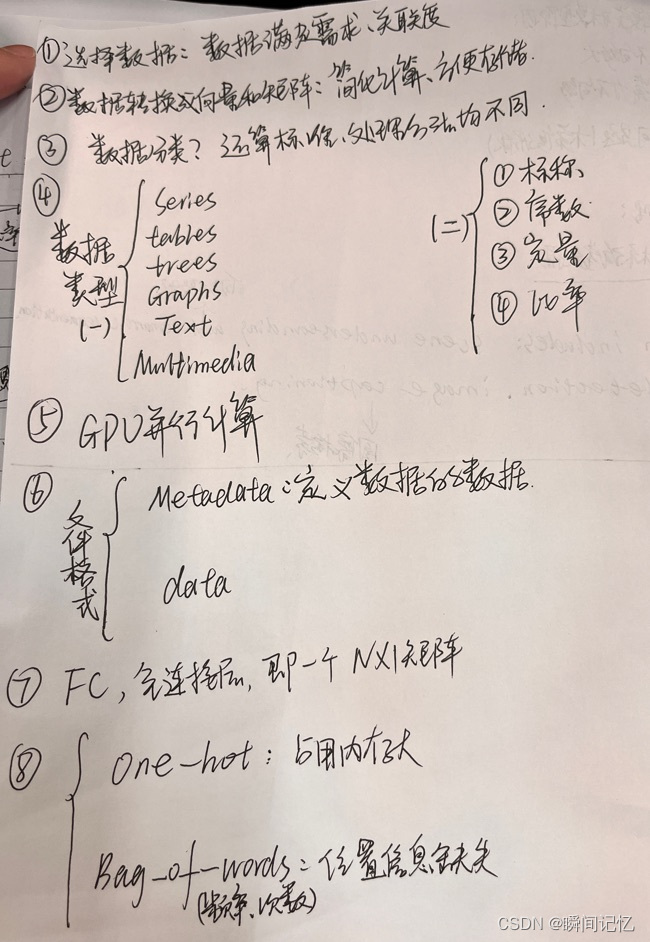 ① 选择数据：数据满足需求、关联度
② 数据转换成向量和矩阵：简化计算、方便存储
③ 数据分类？运算标准、处理方法均不同.
④
数据类型(一)
Series
tables
trees
Graphs
Text
Multimedia
(二)
① 标称
② 序数
③ 定量
④ 比率
⑤ GPU并行计算
⑥ 文件格式
Metadata：定义数据的数据.
data
⑦ FC，全连接层，即一个NX1矩阵
⑧
One-hot：占用内存大
Bag-of-words：位置信息缺失
(频率、次数)
CSDN @瞬间记忆